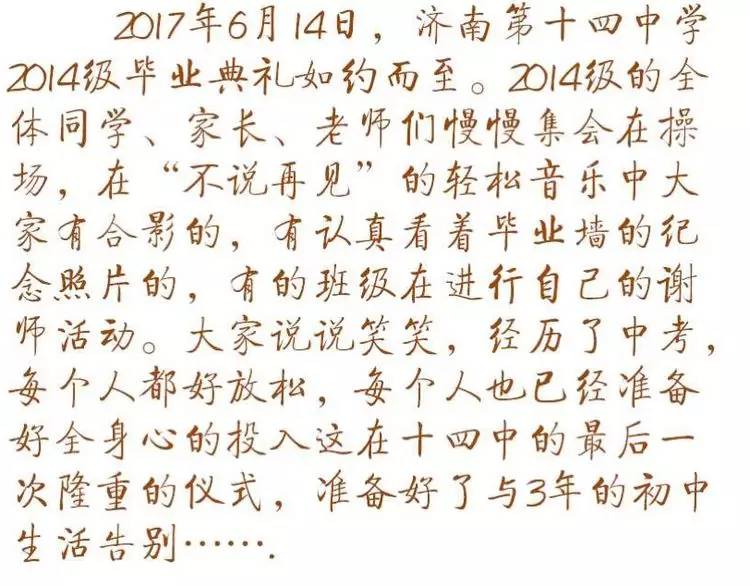 2017年6月14日，济南第十四中学
2014级毕业典礼如约而至。2014级的全
体同学、家长、老师们慢慢集会在操
场，在“不说再见”的轻松音乐中大
家有合影的，有认真看着毕业墙的纪
念照片的，有的班级在进行自己的谢
师活动。大家说说笑笑，经历了中考，
每个人都好放松，每个人也已经准备
好全身心的投入这在十四中的最后一
次隆重的仪式，准备好了与3年的初中
生活告别…….